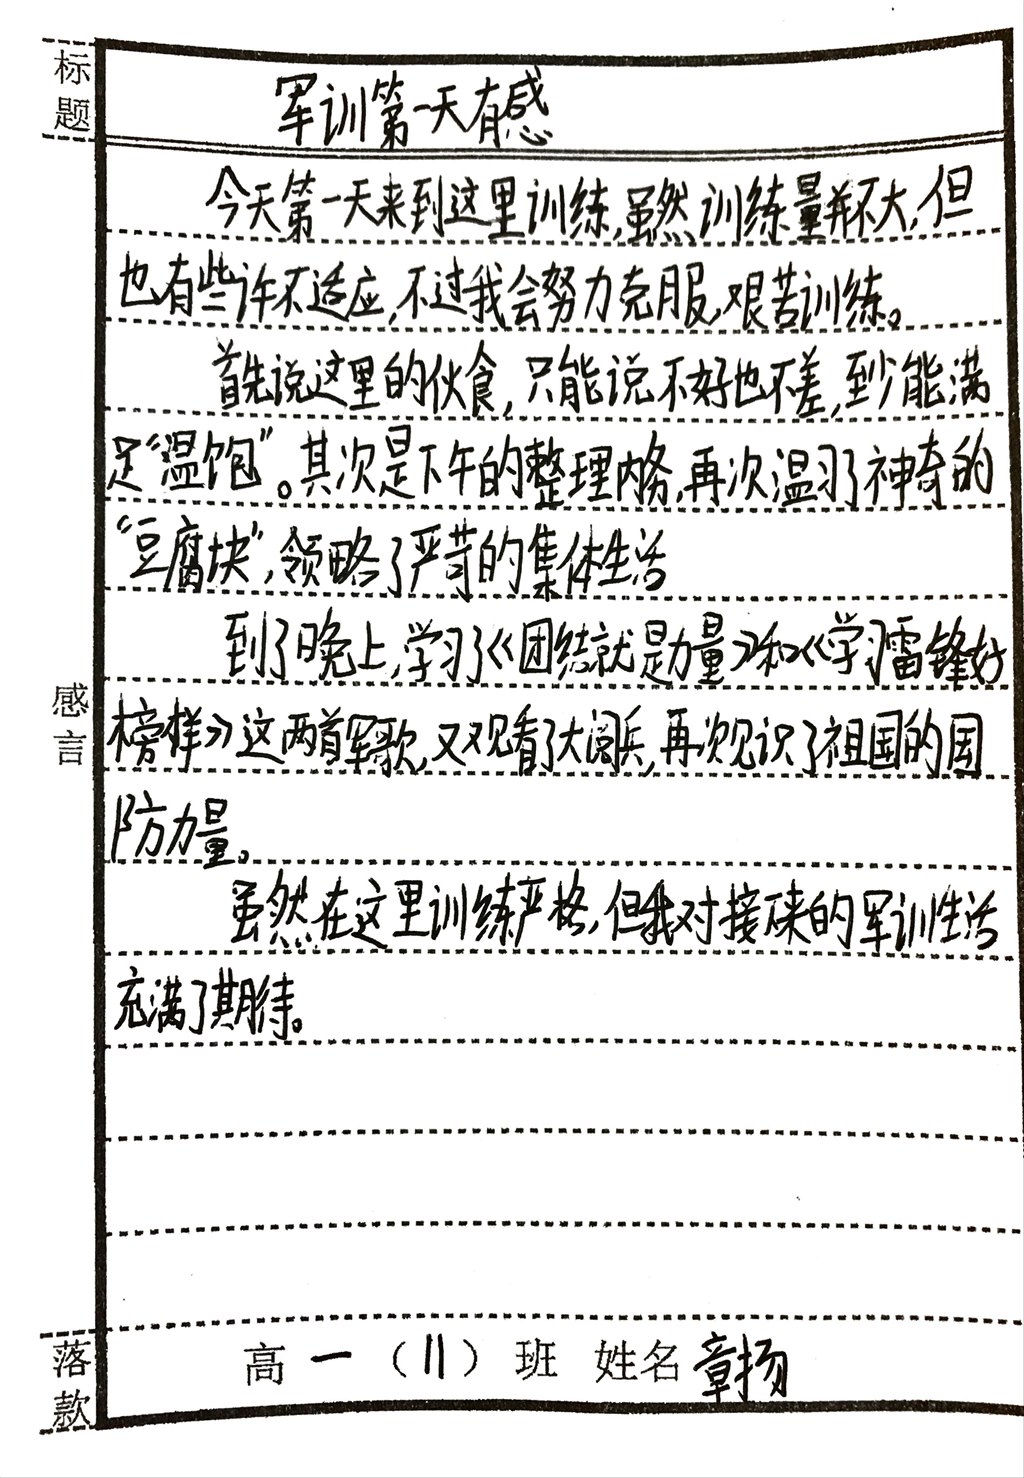 标题
军训第一天有感
今天第一天来到这里训练,虽然训练量并不大,但
也有些许不适应,不过我会努力克服,艰苦训练。
首先说这里的伙食,只能说不好也不差,到少能满
足“温饱”。其次是下午的整理内务,再次温习了神奇的
“豆腐块”,领略了严苛的集体生活
到了晚上,学习了《团结就是力量》和《学习雷锋好
榜样》这两首军歌,又观看了大阅兵,再次见识了祖国的国
防力量。
虽然在这里训练严格,但我对接下来的军训生活
充满了期待。
感言
落款
高一(11)班 姓名章扬